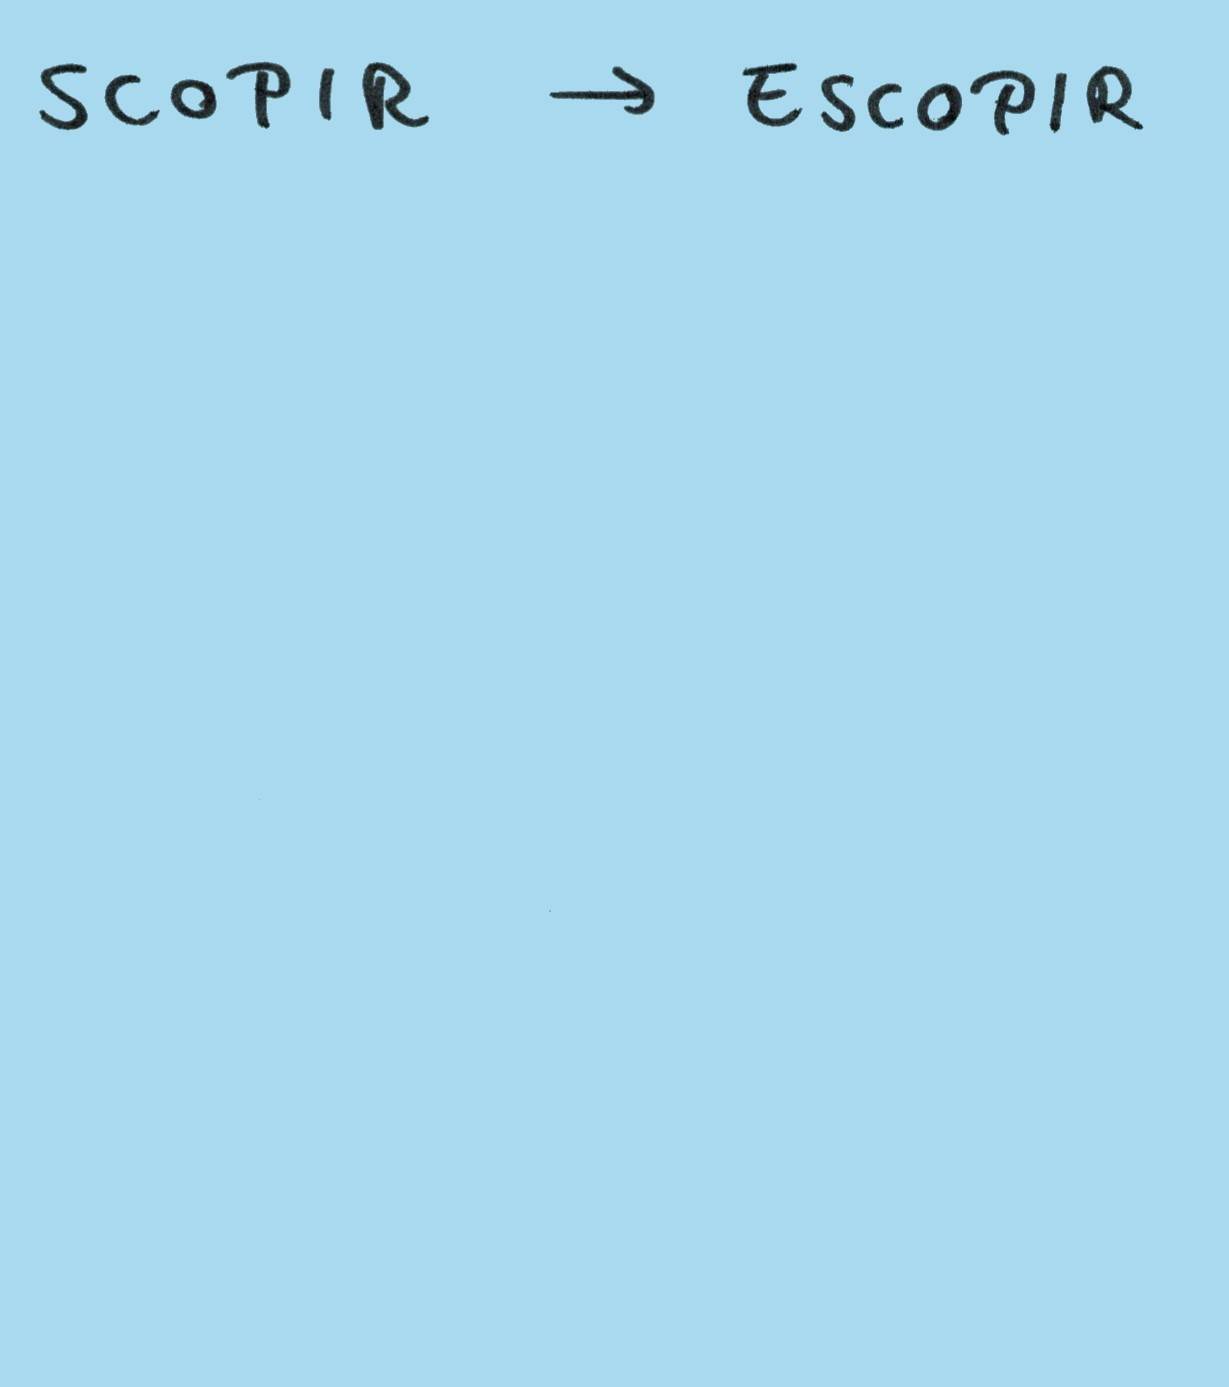 SCOPIR → ESCOPIR